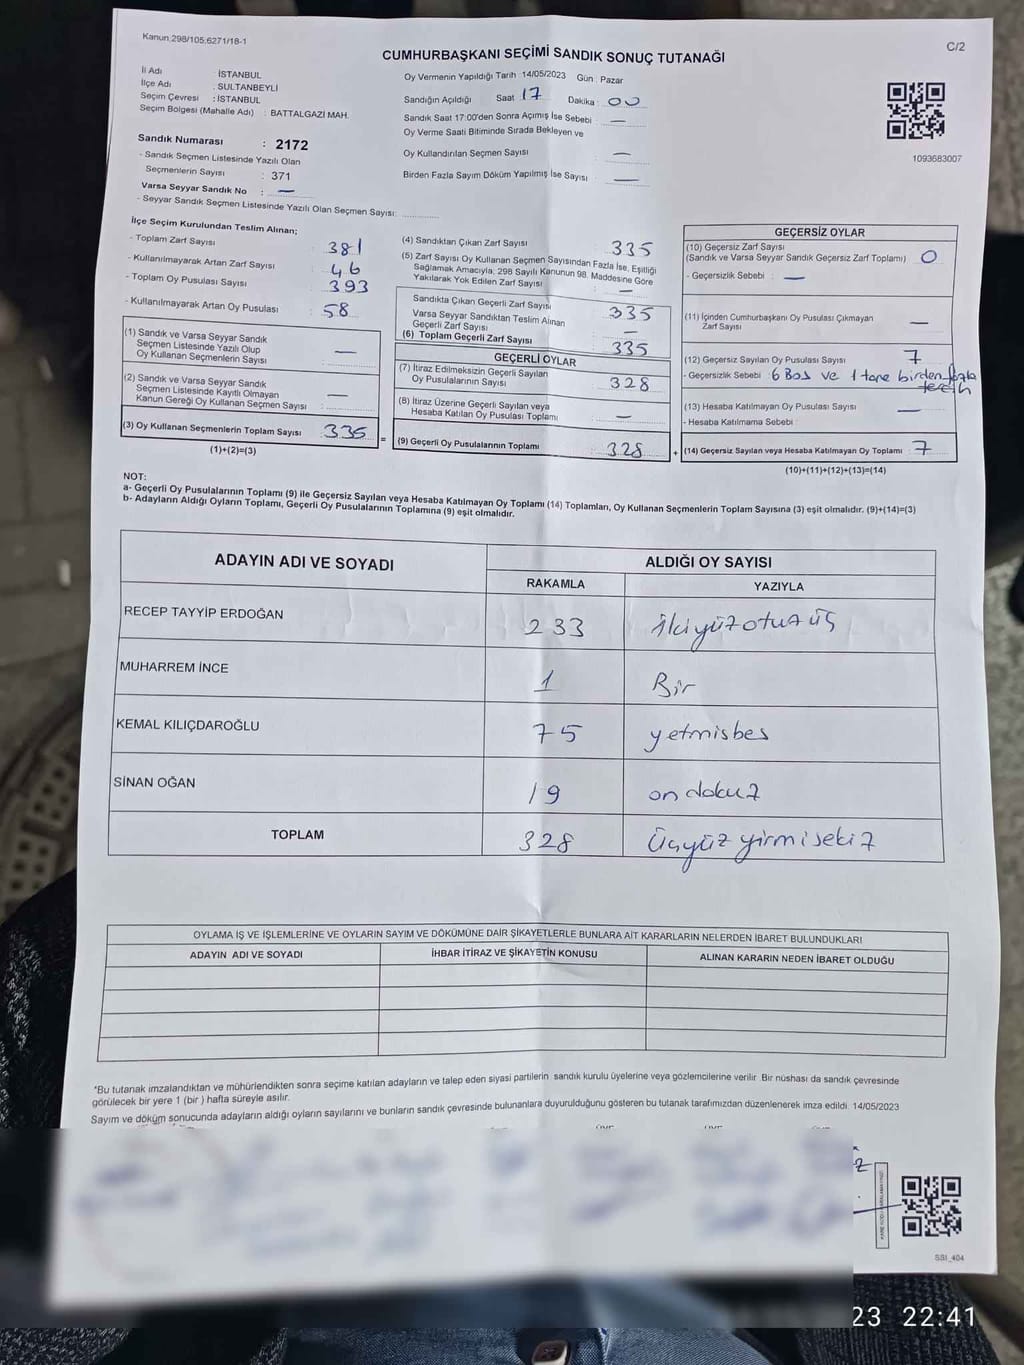 Kanun.298/105;6271/18-1
C/2
CUMHURBAŞKANI SEÇİMİ SANDIK SONUÇ TUTANAĞI
İl Adı : İSTANBUL
İlçe Adı : SULTANBEYLİ
Seçim Çevresi : İSTANBUL
Seçim Bölgesi (Mahalle Adı) : BATTALGAZİ MAH.
Sandık Numarası : 2172
- Sandık Seçmen Listesinde Yazılı Olan
Seçmenlerin Sayısı : 371
Varsa Seyyar Sandık No : —
- Seyyar Sandık Seçmen Listesinde Yazılı Olan Seçmen Sayısı:
Oy Vermenin Yapıldığı Tarih 14/05/2023 Gün : Pazar
Sandığın Açıldığı Saat 17 Dakika : 00
Sandık Saat 17:00'den Sonra Açılmış İse Sebebi : —
Oy Verme Saati Bitiminde Sırada Bekleyen ve
Oy Kullandırılan Seçmen Sayısı —
Birden Fazla Sayım Döküm Yapılmış İse Sayısı : —
1093683007
İlçe Seçim Kurulundan Teslim Alınan;
- Toplam Zarf Sayısı : 381
- Kullanılmayarak Artan Zarf Sayısı : 46
- Toplam Oy Pusulası Sayısı : 393
- Kullanılmayarak Artan Oy Pusulası : 58
(1) Sandık ve Varsa Seyyar Sandık
Seçmen Listesinde Yazılı Olup
Oy Kullanan Seçmenlerin Sayısı : —
(2) Sandık ve Varsa Seyyar Sandık
Seçmen Listesinde Kayıtlı Olmayan
Kanun Gereği Oy Kullanan Seçmen Sayısı : —
(3) Oy Kullanan Seçmenlerin Toplam Sayısı : 335
(1)+(2)=(3)
(4) Sandıktan Çıkan Zarf Sayısı : 335
(5) Zarf Sayısı Oy Kullanan Seçmen Sayısından Fazla İse, Eşitliği
Sağlamak Amacıyla, 298 Sayılı Kanunun 98. Maddesine Göre
Yakılarak Yok Edilen Zarf Sayısı : —
Sandıkta Çıkan Geçerli Zarf Sayısı : 335
Varsa Seyyar Sandıktan Teslim Alınan
Geçerli Zarf Sayısı : —
(6) Toplam Geçerli Zarf Sayısı : 335
GEÇERLİ OYLAR
(7) İtiraz Edilmeksizin Geçerli Sayılan
Oy Pusulalarının Sayısı : 328
(8) İtiraz Üzerine Geçerli Sayılan veya
Hesaba Katılan Oy Pusulası Toplamı : —
= (9) Geçerli Oy Pusulalarının Toplamı : 328
GEÇERSİZ OYLAR
(10) Geçersiz Zarf Sayısı
(Sandık ve Varsa Seyyar Sandık Geçersiz Zarf Toplamı) : 0
- Geçersizlik Sebebi : —
(11) İçinden Cumhurbaşkanı Oy Pusulası Çıkmayan
Zarf Sayısı : —
(12) Geçersiz Sayılan Oy Pusulası Sayısı : 7
- Geçersizlik Sebebi : 6 Bos ve 1 tane birden fazla
tercih
(13) Hesaba Katılmayan Oy Pusulası Sayısı : —
- Hesaba Katılmama Sebebi :
+ (14) Geçersiz Sayılan veya Hesaba Katılmayan Oy Toplamı : 7
(10)+(11)+(12)+(13)=(14)
NOT:
a- Geçerli Oy Pusulalarının Toplamı (9) ile Geçersiz Sayılan veya Hesaba Katılmayan Oy Toplamı (14) Toplamları, Oy Kullanan Seçmenlerin Toplam Sayısına (3) eşit olmalıdır. (9)+(14)=(3)
b- Adayların Aldığı Oyların Toplamı, Geçerli Oy Pusulalarının Toplamına (9) eşit olmalıdır.
ADAYIN ADI VE SOYADI ALDIĞI OY SAYISI
RAKAMLA YAZIYLA
RECEP TAYYİP ERDOĞAN 233 ikiyüzotuz üç
MUHARREM İNCE 1 Bir
KEMAL KILIÇDAROĞLU 75 yetmisbes
SİNAN OĞAN 19 on dokuz
TOPLAM 328 Üçyüz yirmisekiz
OYLAMA İŞ VE İŞLEMLERİNE VE OYLARIN SAYIM VE DÖKÜMÜNE DAİR ŞİKAYETLERLE BUNLARA AİT KARARLARIN NELERDEN İBARET BULUNDUKLARI
ADAYIN ADI VE SOYADI İHBAR İTİRAZ VE ŞİKAYETİN KONUSU ALINAN KARARIN NEDEN İBARET OLDUĞU
*Bu tutanak imzalandıktan ve mühürlendikten sonra seçime katılan adayların ve talep eden siyasi partilerin sandık kurulu üyelerine veya gözlemcilerine verilir. Bir nüshası da sandık çevresinde
görülecek bir yere 1 (bir ) hafta süreyle asılır.
Sayım ve döküm sonucunda adayların aldığı oyların sayılarını ve bunların sandık çevresinde bulunanlara duyurulduğunu gösteren bu tutanak tarafımızdan düzenlenerek imza edildi. 14/05/2023
SSI_404
23 22:41